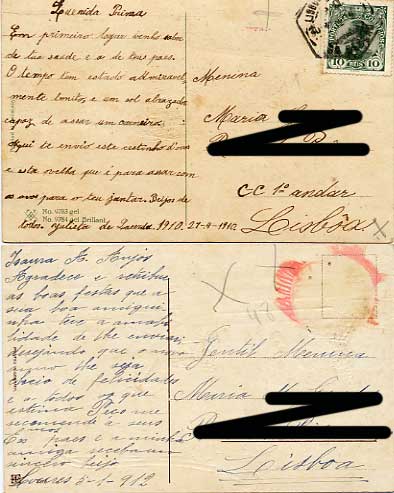 Querida Prima
Em primeiro logar venho saber
de tua saude e a de teus paes.
O tempo tem estado admiravel
mente bonito e um sol abrazador
capaz de assar um carneiro
Aqui te envio este cestinho d'ovos
e esta velha que é para assar com
os ovos para o teu jantar. Beijos de
todos. Julieta de Lacerda. 1910. 27-9-1910.
No. 9783 gel
No. 9784 del Brillant
10 10
Menina
Maria
CC 1º andar
Lisbôa
Isaura A. Anjos
Agradece e retribue
as boas festas que a
sua boa amigui
nha teve a amabi
lidade de lhe enviar
desejando que o novo
anno lhe seja
cheio de felicidades
e a todos a que
estima Peço me
recomende a seus
Ex paes e a minha
amiga receba um
sincero beijo
5-1-912
48
Gentil Menina
Maria
Lisboa